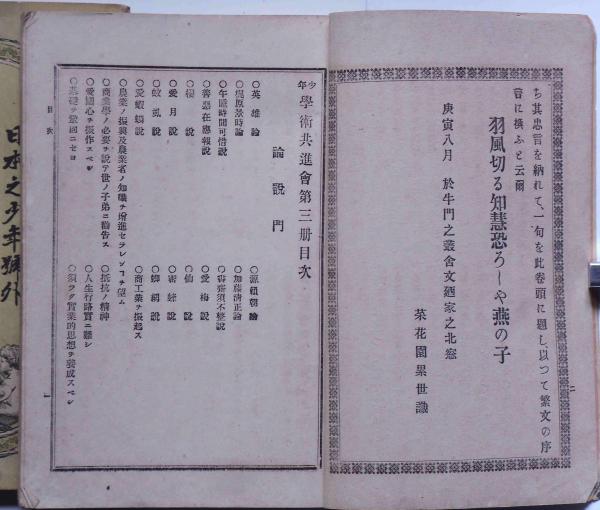 ち其忠言を納れて、一句を此卷頭に題し以つて繁文の序
言に換ふと云爾
羽風切る知慧恐ろしや燕の子
庚寅八月 於牛門之叢舍文廼家之北窓
菜花園累世識
二
少年學術共進會第三册目次
論說門
○英雄論
○源賴朝論
○梶原景時論
○加藤清正論
○午睡時間可惜說
○書齋須不整說
○善惡在應報說
○愛梅說
○櫻說
○仙說
○愛月說
○蜜蜂說
○蚊虱說
○蜘網說
○愛蝦蟇說
○商工業ヲ振起ス
○農業ノ振興及農業者ノ知職ヲ增進セラレンコヲ望ム
○商業學ノ必要ヲ說テ世ノ子弟ニ勸告ス
○抵抗ノ精神
○愛國心ヲ振作スベシ
○人生行路實ニ難シ
○基礎ヲ鞏固ニセヨ
○須ラク實業的思想ヲ養成スベシ
目次
一
日本之少年號外